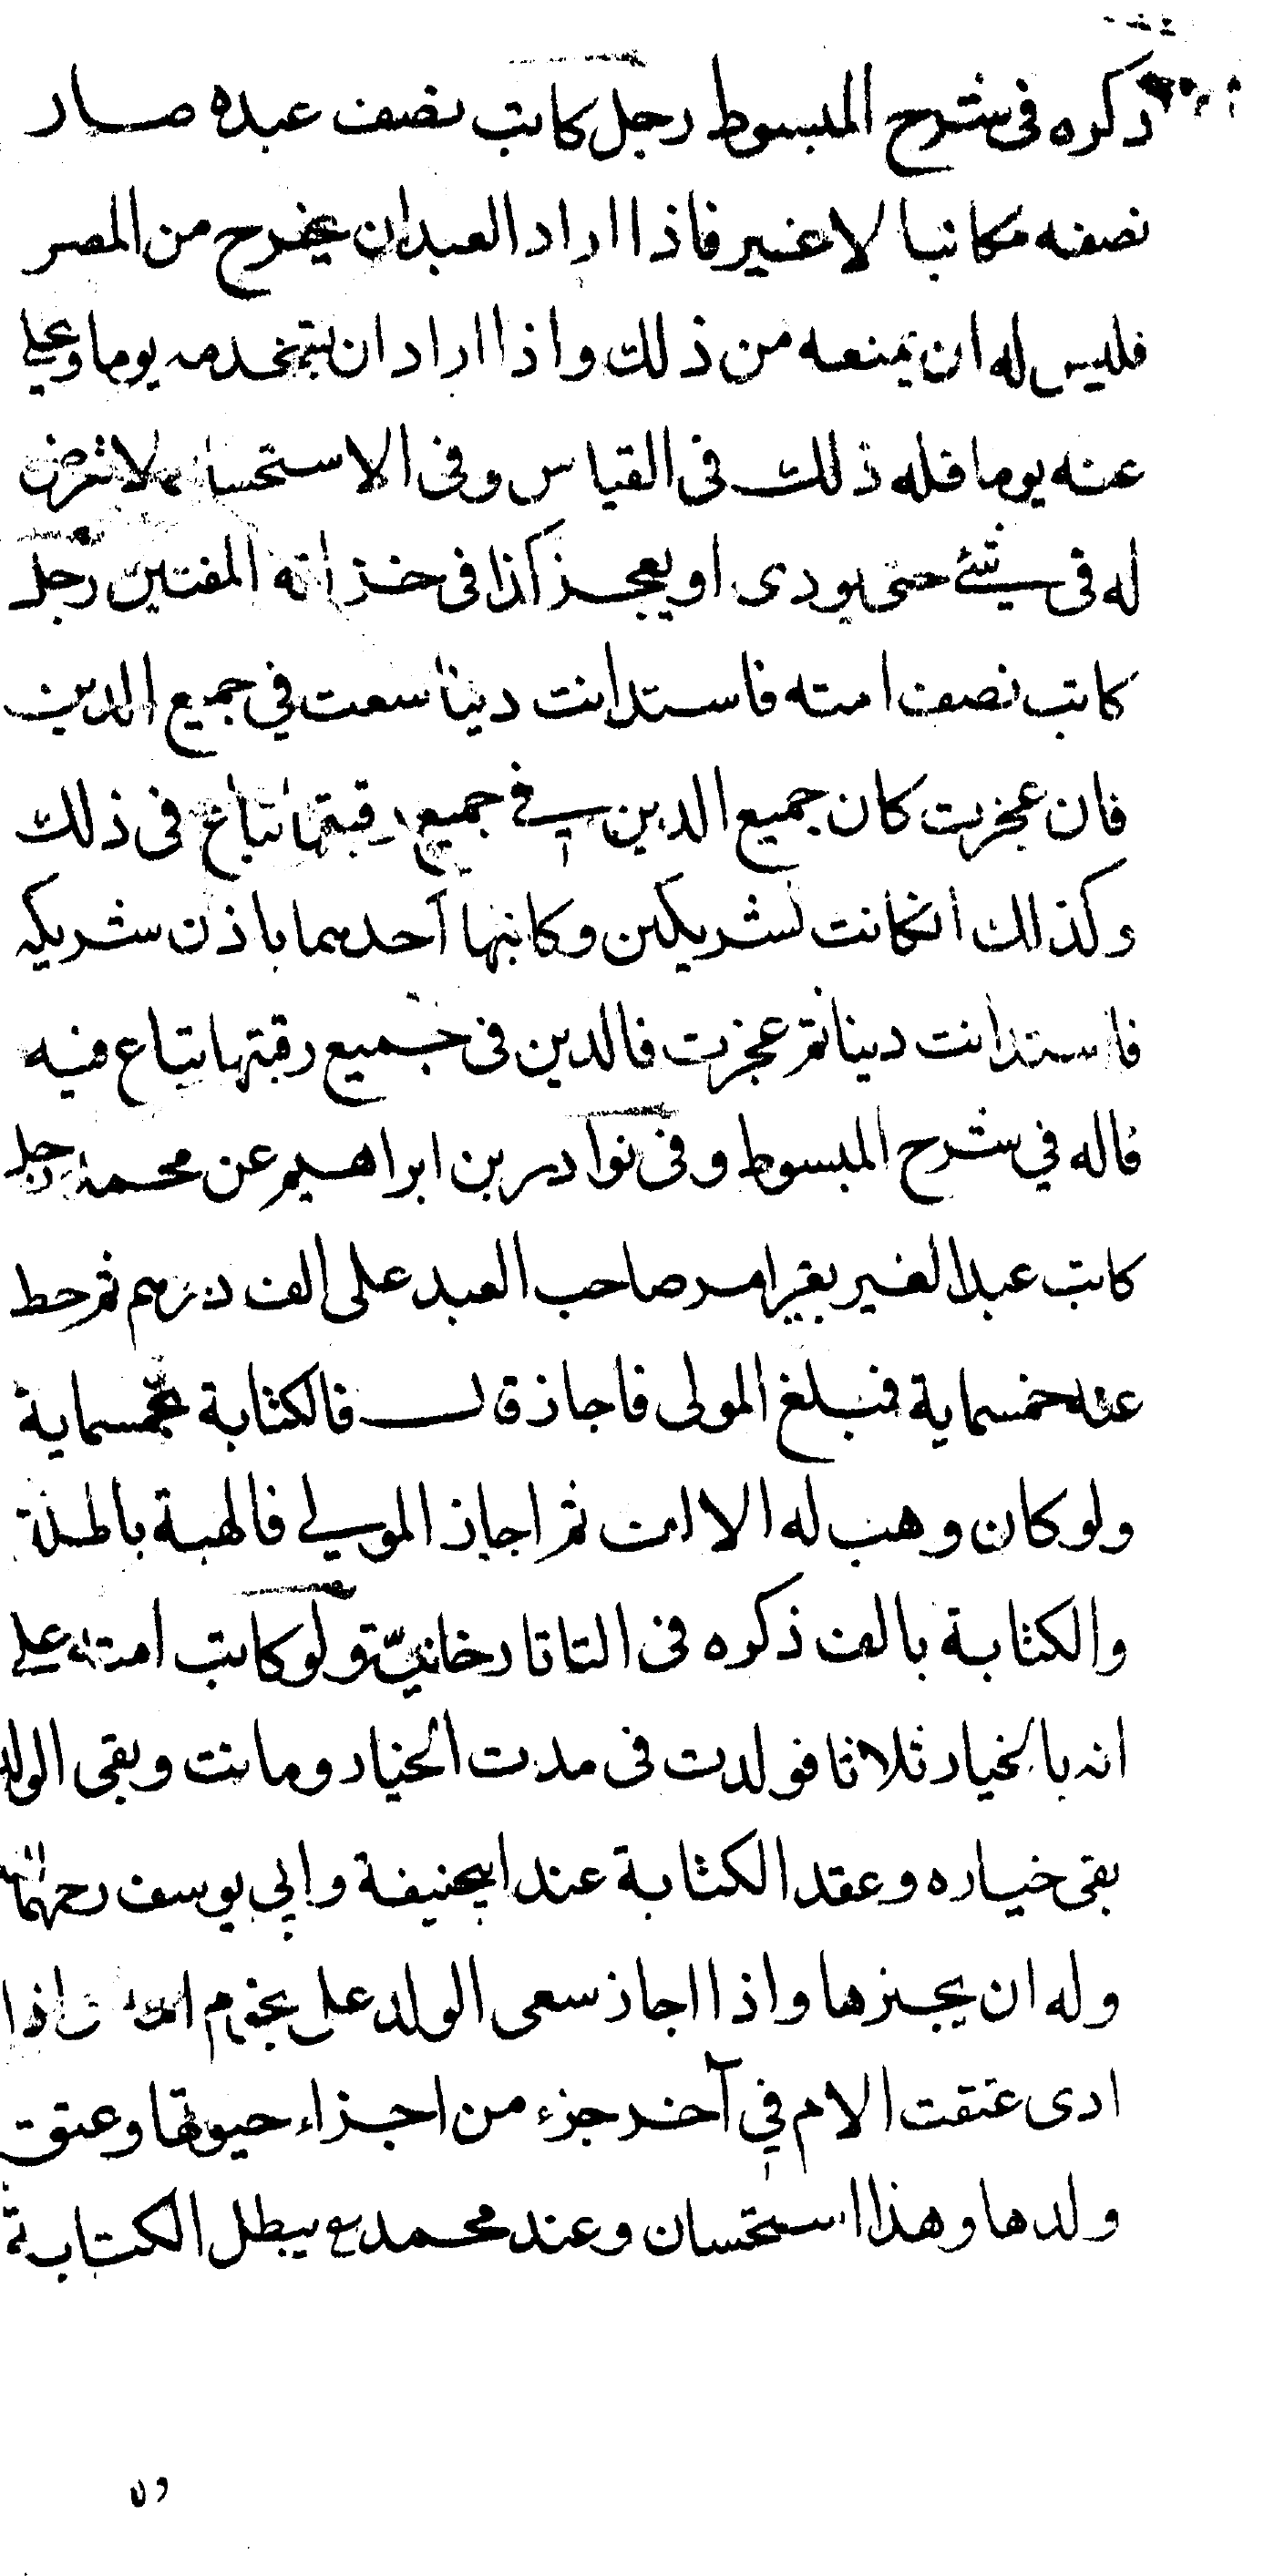 ذكره فى شرح المبسوط رجل كاتب نصف عبده صار
نصفه مكاتبا لا غير فاذا اراد العبد ان يخرج من المصر
فليس له ان يمنعه من ذلك واذا اراد ان يستخدمه يوما ويخلي
عنه يوما فله ذلك فى القياس وفى الاستحسان لا تعرض
له فى شئ حتى يودى او يعجز كذا فى خزانة المفتين رجل
كاتب نصف امته فاستدانت دينا سعت في جميع الدين
فان عجزت كان جميع الدين في جميع رقبتها تباع فى ذلك
وكذلك انكانت لشريكين وكاتبها احدهما باذن شريكه
فاستدانت دينا ثم عجزت فالدين فى جميع رقبتها تباع فيه
قاله في شرح المبسوط وفى نوادر بن ابراهيم عن محمد رجل
كاتب عبدا لغير بغير امر صاحب العبد على الف درهم ثم حط
عنه خمسماية فبلغ المولى فاجاز قال فالكتابة بخمسماية
ولو كان وهب له الالف ثم اجاز المولي فالهبة باطلة
والكتابة بالف ذكره فى التاتارخانيّة ولو كاتب امته على
انه بالخيار ثلاثا فولدت فى مدت الخيار وماتت وبقى الولد
بقى خياره وعقد الكتابة عند ابيحنيفة وابي يوسف رحمهما
وله ان يجيزها واذا اجاز سعى الولد على نجوم امه واذا
ادى عتقت الام في آخر جزء من اجزاء حيوتها وعتق
ولدها وهذا استحسان وعند محمد ع يبطل الكتابة